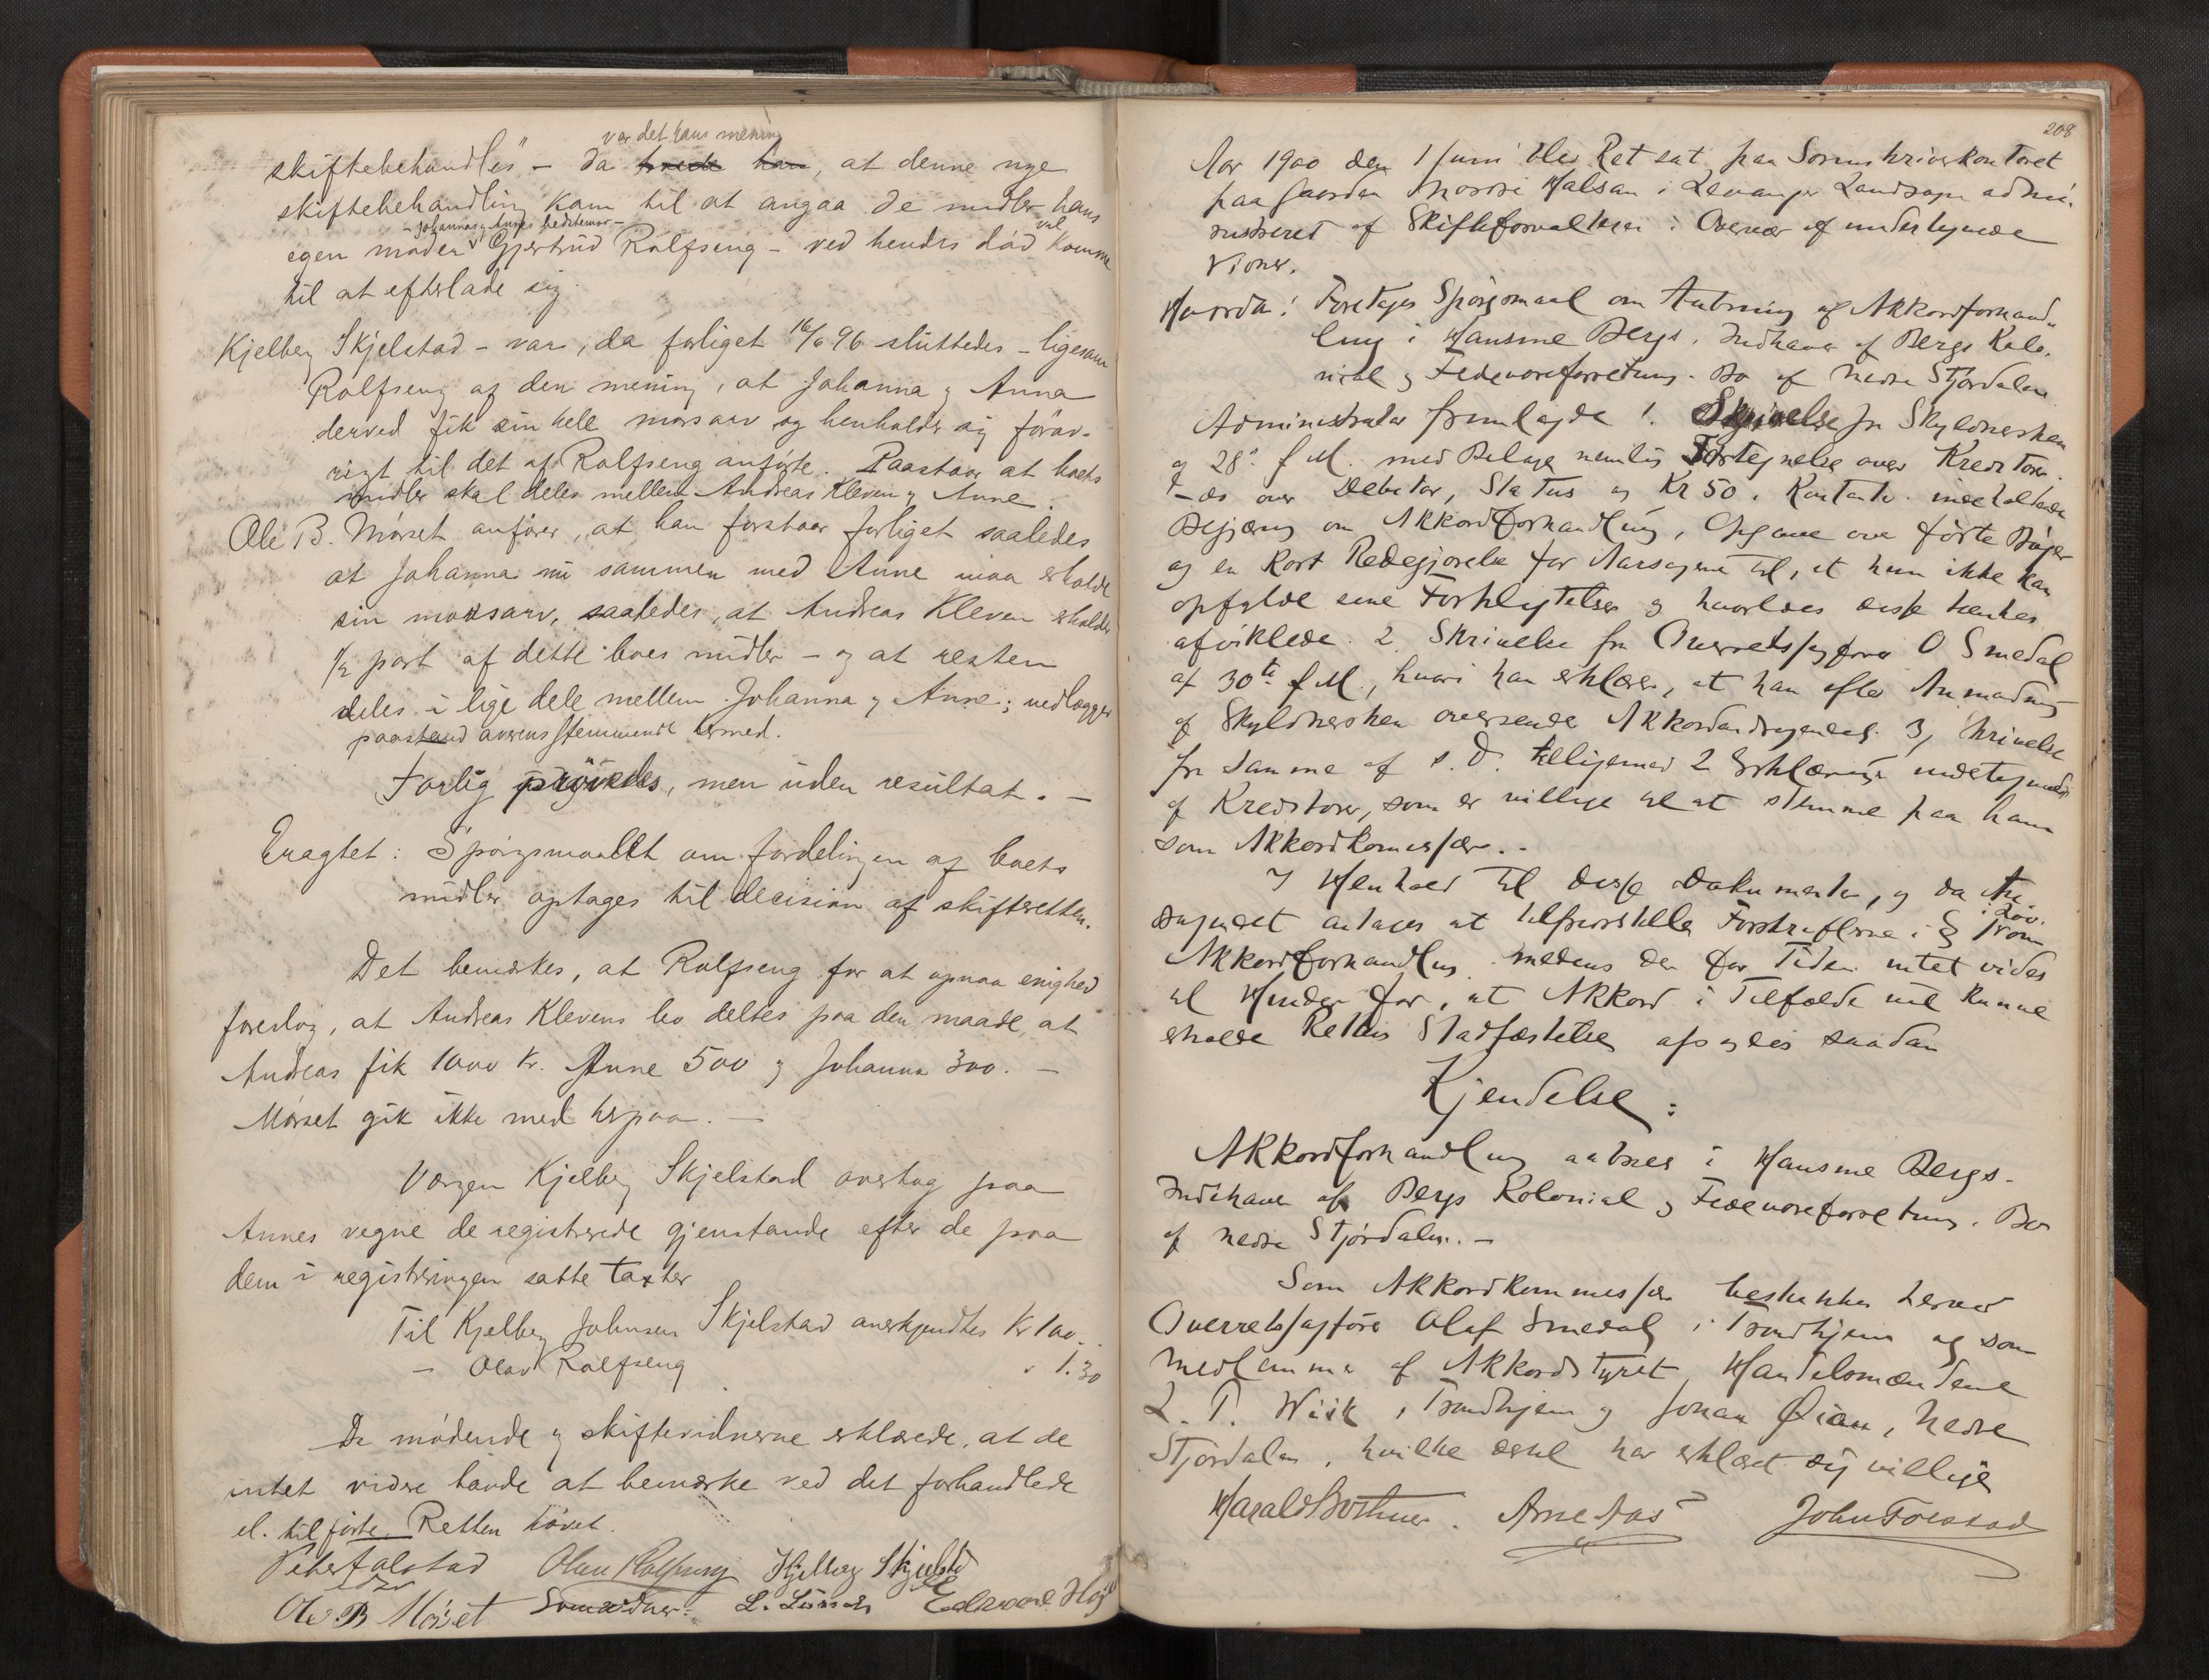 skiftebehandles" – da trode han, at denne nye
var det hans mening
skiftebehandling kom til at angaa de midler hans
egen moder Gjertrud Rolfseng – ved hendes död vil komme
– Johannas og Annes bedstemor –
til at efterlade sig.
Kjelberg Skjelstad – var, da forliget 16/6 96 sluttedes – ligesom
Rolfseng af den mening, at Johanna og Anna
derved fik sin hele morsarv og henholder sig forøv-
rigt til det af Rolfseng anførte. Paastaar at boets
midler skal deles mellem Andreas Kleven og Anne.
Ole B. Mørset anfører, at han forstaar forliget saaledes
at Johanna nu sammen med Anne maa erholde
sin morsarv, saaledes, at Andreas Kleven erholder
1/2 part af dette boes midler – og at resten
deles i lige dele mellem Johanna og Anne; nedlægger
paastand overensstemmende hermed.
Forlig prøvedes, men uden resultat. –
Eragtet: Spörgsmaalet om fordelingen af boets
midler optages til decision af skifteretten.
Det bemerkes, at Rolfseng for at opnaa enighed
foreslog, at Andreas Klevens bo deltes paa den maade, at
Andreas fik 1000 kr. Anne 500 og Johanna 300. –
Mörset gik ikke med herpaa. –
Vergen Kjelberg Skjelstad overtog paa
Annes vegne de registrerede gjenstande efter de paa
dem i registreringen satte taxter
Til Kjelberg Johnsen Skjelstad anerkjendtes Kr 100.
– Olav Rolfseng " 1.30
De mödende og skiftevidnerne erklærede, at de
intet videre havde at bemærke ved det forhandlede
el. tilförte. Retten hævet.
Peter Falstad Olav Rolfseng Kjelberg Skjelstad
Ole B Mörset Som vidner: L. Edvard
208
Aar 1900 den 1 Juni blev Ret sat paa Sorenskriverkontoret
paa Gaarden Nordre Halsan i Levanger Landsogn admi-
nistreret af Skifteforvalteren i Overvær af undertegnede
Vidner.
Hvorda: Foretages Spörgsmaal om Aabning af Akkordforhand-
ling i Hansine Bergs, Indhaver af Bergs Kolo-
nial og Fedevareforretning. Bo af Nedre Stjørdalen
Administrator fremlagde 1. Skrivelse fra Skyldnersken
af 28de f. M. med Bilage nemlig Fortegnelse over Kreditorer
– do over Debitor, Status og Kr 50. Kontante indeholdende
Begjæring om Akkordforhandling, Opgave over förte Böger
og en kort Redegjörelse for Aarsagerne til, at hun ikke kan
opfylde sine Forpligtelser og hvorledes disse tænkes
afviklede. 2. Skrivelse fra Overretssagfører O Smedal
af 30te f. M., hvori han erklærer, at han efter Anmodning
af Skyldnersken oversender Akkordandragendet. 3, Skrivelse
fra samme af s. D. tilligemed 2 Erklæringer undertegnede
af Kreditorer, som er villige til at stemme paa ham
som Akkordkommissær. –
I Henhold til disse Dokumenter, og da An-
dragendet antages at tilfredsstille Forskrifterne i § i Lov om
Akkordforhandling medens der for Tiden intet vides
til Hinder for, at Akkord i Tilfælde vil kunne
erholde Rettens Stadfæstelse afsagdes saadan
Kjendelse:
Akkordforhandling aabnes i Hansine Bergs.
Indehaver af Bergs Kolonial og Fedevareforretning. Bo
af Nedre Stjørdalen. –
Som Akkordkommissær beskikkes herved
Overretssagförer Olaf Smedal i Trondhjem og som
Medlemmer af Akkordstyret Handelsmændene
L. T. Wiik, Trondhjem og Johan Øian, Nedre
Stjørdalen, hvilke dertil har erklæret sig villige
Harald Bothner. Arne Aas John Forstad